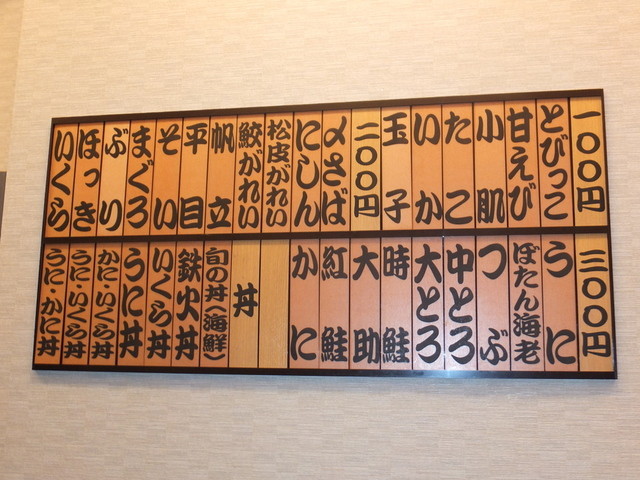 一〇〇円
とびっこ
甘えび
小肌
たこ
いか
玉子
二〇〇円
〆さば
にしん
松皮がれい
鮫がれい
帆立
平目
そい
まぐろ
ぶり
ほっき
いくら
三〇〇円
うに
ぼたん海老
つぶ
中とろ
大とろ
時鮭
大助
紅鮭
かに
丼
旬の丼(海鮮)
鉄火丼
いくら丼
うに丼
かに・いくら丼
うに・いくら丼
うに・かに丼